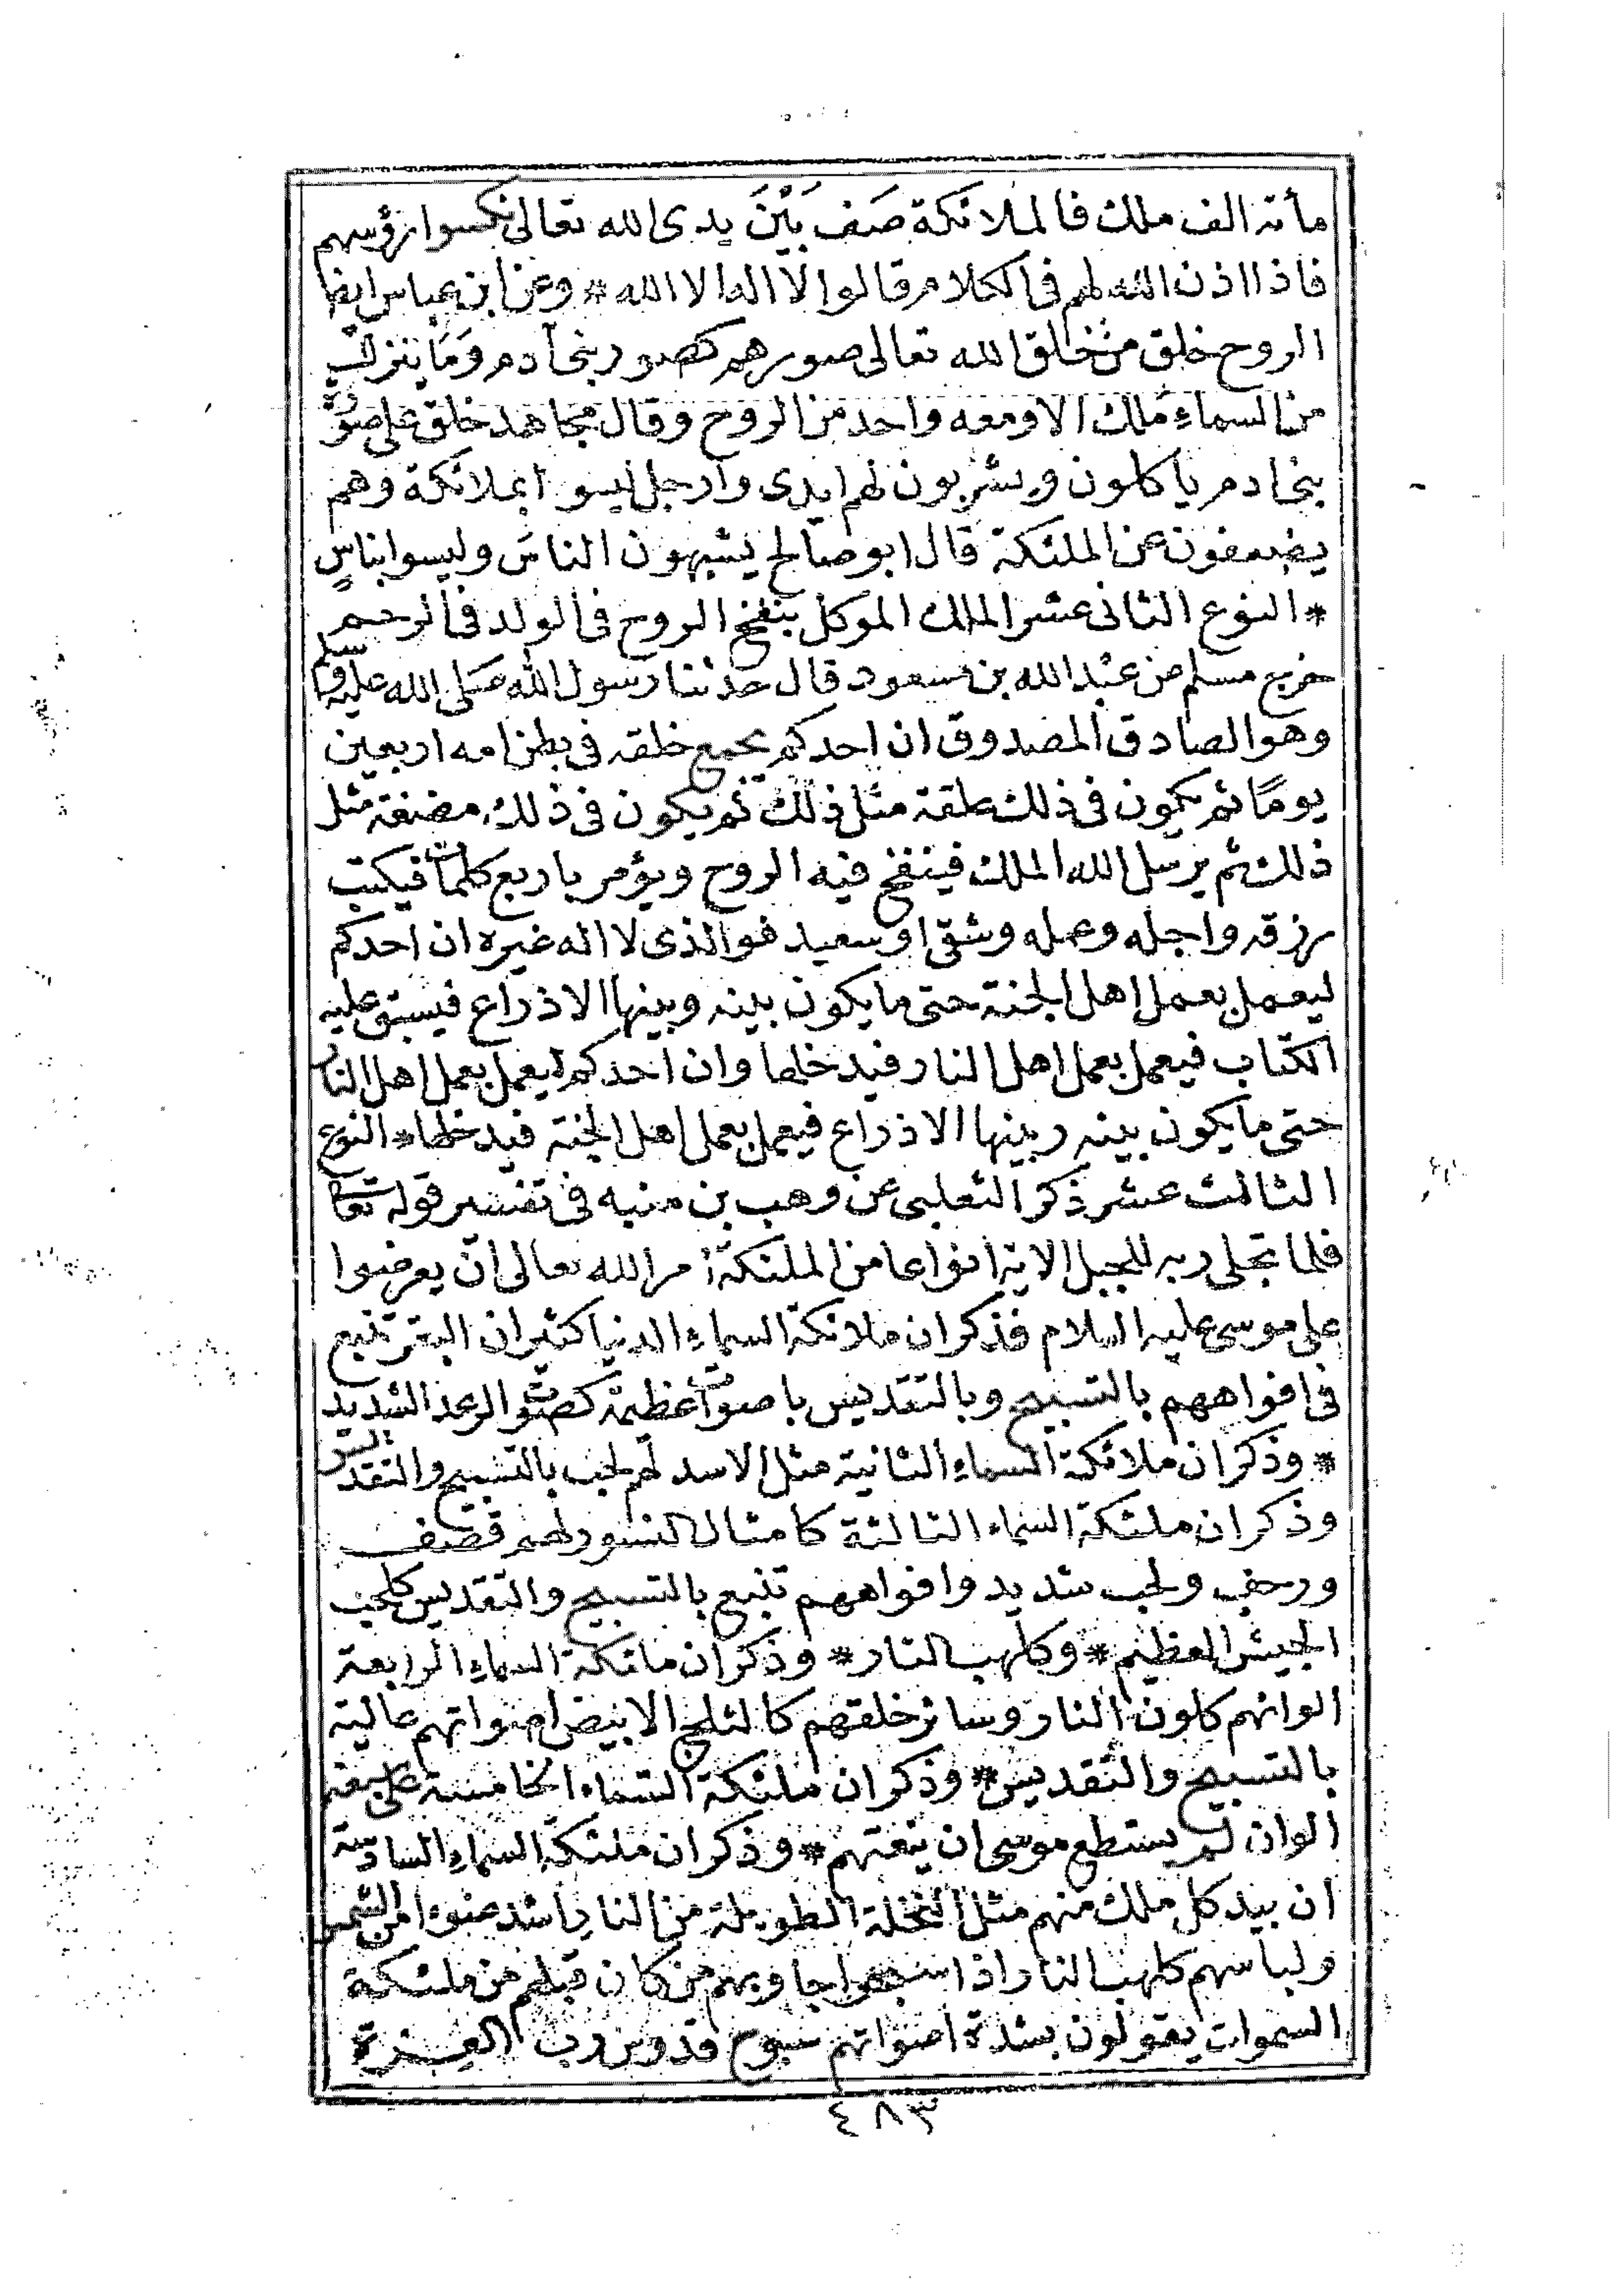 مأته الف ملك فالملائكة صَف بَيْنَ يدى الله تعالى نكسوا رؤسهم
فاذا اذن الله لهم فى الكلام قالوا لا اله الا الله * وعن ابن عباس ايضا
الروح خلق من خلق الله تعالى صورهم كصور بنى آدم وَمَا ينزل
من السماء ملك الا ومعه واحد من الروح وقال مجاهد خلق على صورة
بنى ادم ياكلون ويشربون لهم ايدى وارجل ليسوا بملائكة وهم
يضعفون عن الملئكة قال ابو صالح يشبهون الناس وليسوا بناسٍ
* النوع الثانى عشر الملك الموكل بنفخ الروح فى الولد فى الرحم
خرج مسلم عن عبد الله بن مسعود قال حدثنا رسول الله صَلى الله عليه وسلم
وهو الصادق المصدوق ان احدكم يجمع خلقه فى بطن امه اربعين
يومًا ثم يكون فى ذلك علقة مثل ذلك ثم يكون فى ذلك مضغة مثل
ذلك ثم يرسل الله الملك فينفخ فيه الروح ويؤمر باربع كلمات فيكتب
رزقه واجله وعمله وشقى او سعيد فوالذى لا اله غيره ان احدكم
ليعمل بعمل اهل الجنة حتى ما يكون بينه وبينها الا ذراع فيسبق عليه
الكتاب فيعمل بعمل اهل النار فيدخلها وان احدكم ليعمل بعمل اهل النار
حتى ما يكون بينه وبينها الا ذراع فيعمل بعمل اهل الجنة فيدخلها * النوع
الثالث عشر ذكر الثعلبى عن وهب بن منبه فى تفسير قوله تعا
فلما تجلى ربه للجبل الاية انواعا من الملئكة امر الله تعالى ان يعرضوا
على موسى عليه السلام فذكر ان ملائكة السماء الدنيا كثيران البقر تنبع
فى افواههم بالتسبيح وبالتقديس باصوات عظيمة كصوت الرعد الشديد
* وذكر ان ملائكة السماء الثانية مثل الاسد لهم لجب بالتسبيح والتقديس
وذكر ان ملئكة السماء الثالثة كامثال النسور لهم قصف
ورجف ولجب شديد وافواههم تنبع بالتسبيح والتقديس كلجب
الجيش العظيم * وكلهب النار * وذكر ان ملئكة السماء الرابعة
الوانهم كلون النار وسائر خلقهم كالثلج الابيض اصواتهم عالية
بالتسبيح والتقديس * وذكر ان ملئكة السماء الخامسة على سبعة
الوان لم يستطع موسى ان ينعتهم * وذكر ان ملئكة السماء السادسة
ان بيد كل ملك منهم مثل النخلة الطويلة من النار اشد ضوءا من الشمس
ولباسهم كلهب النار اذا سبحوا جاوبهم من كان قبلهم من ملئكة
السموات يقولون بشدة اصواتهم سبوح قدوس رب العزة
٤٨٣